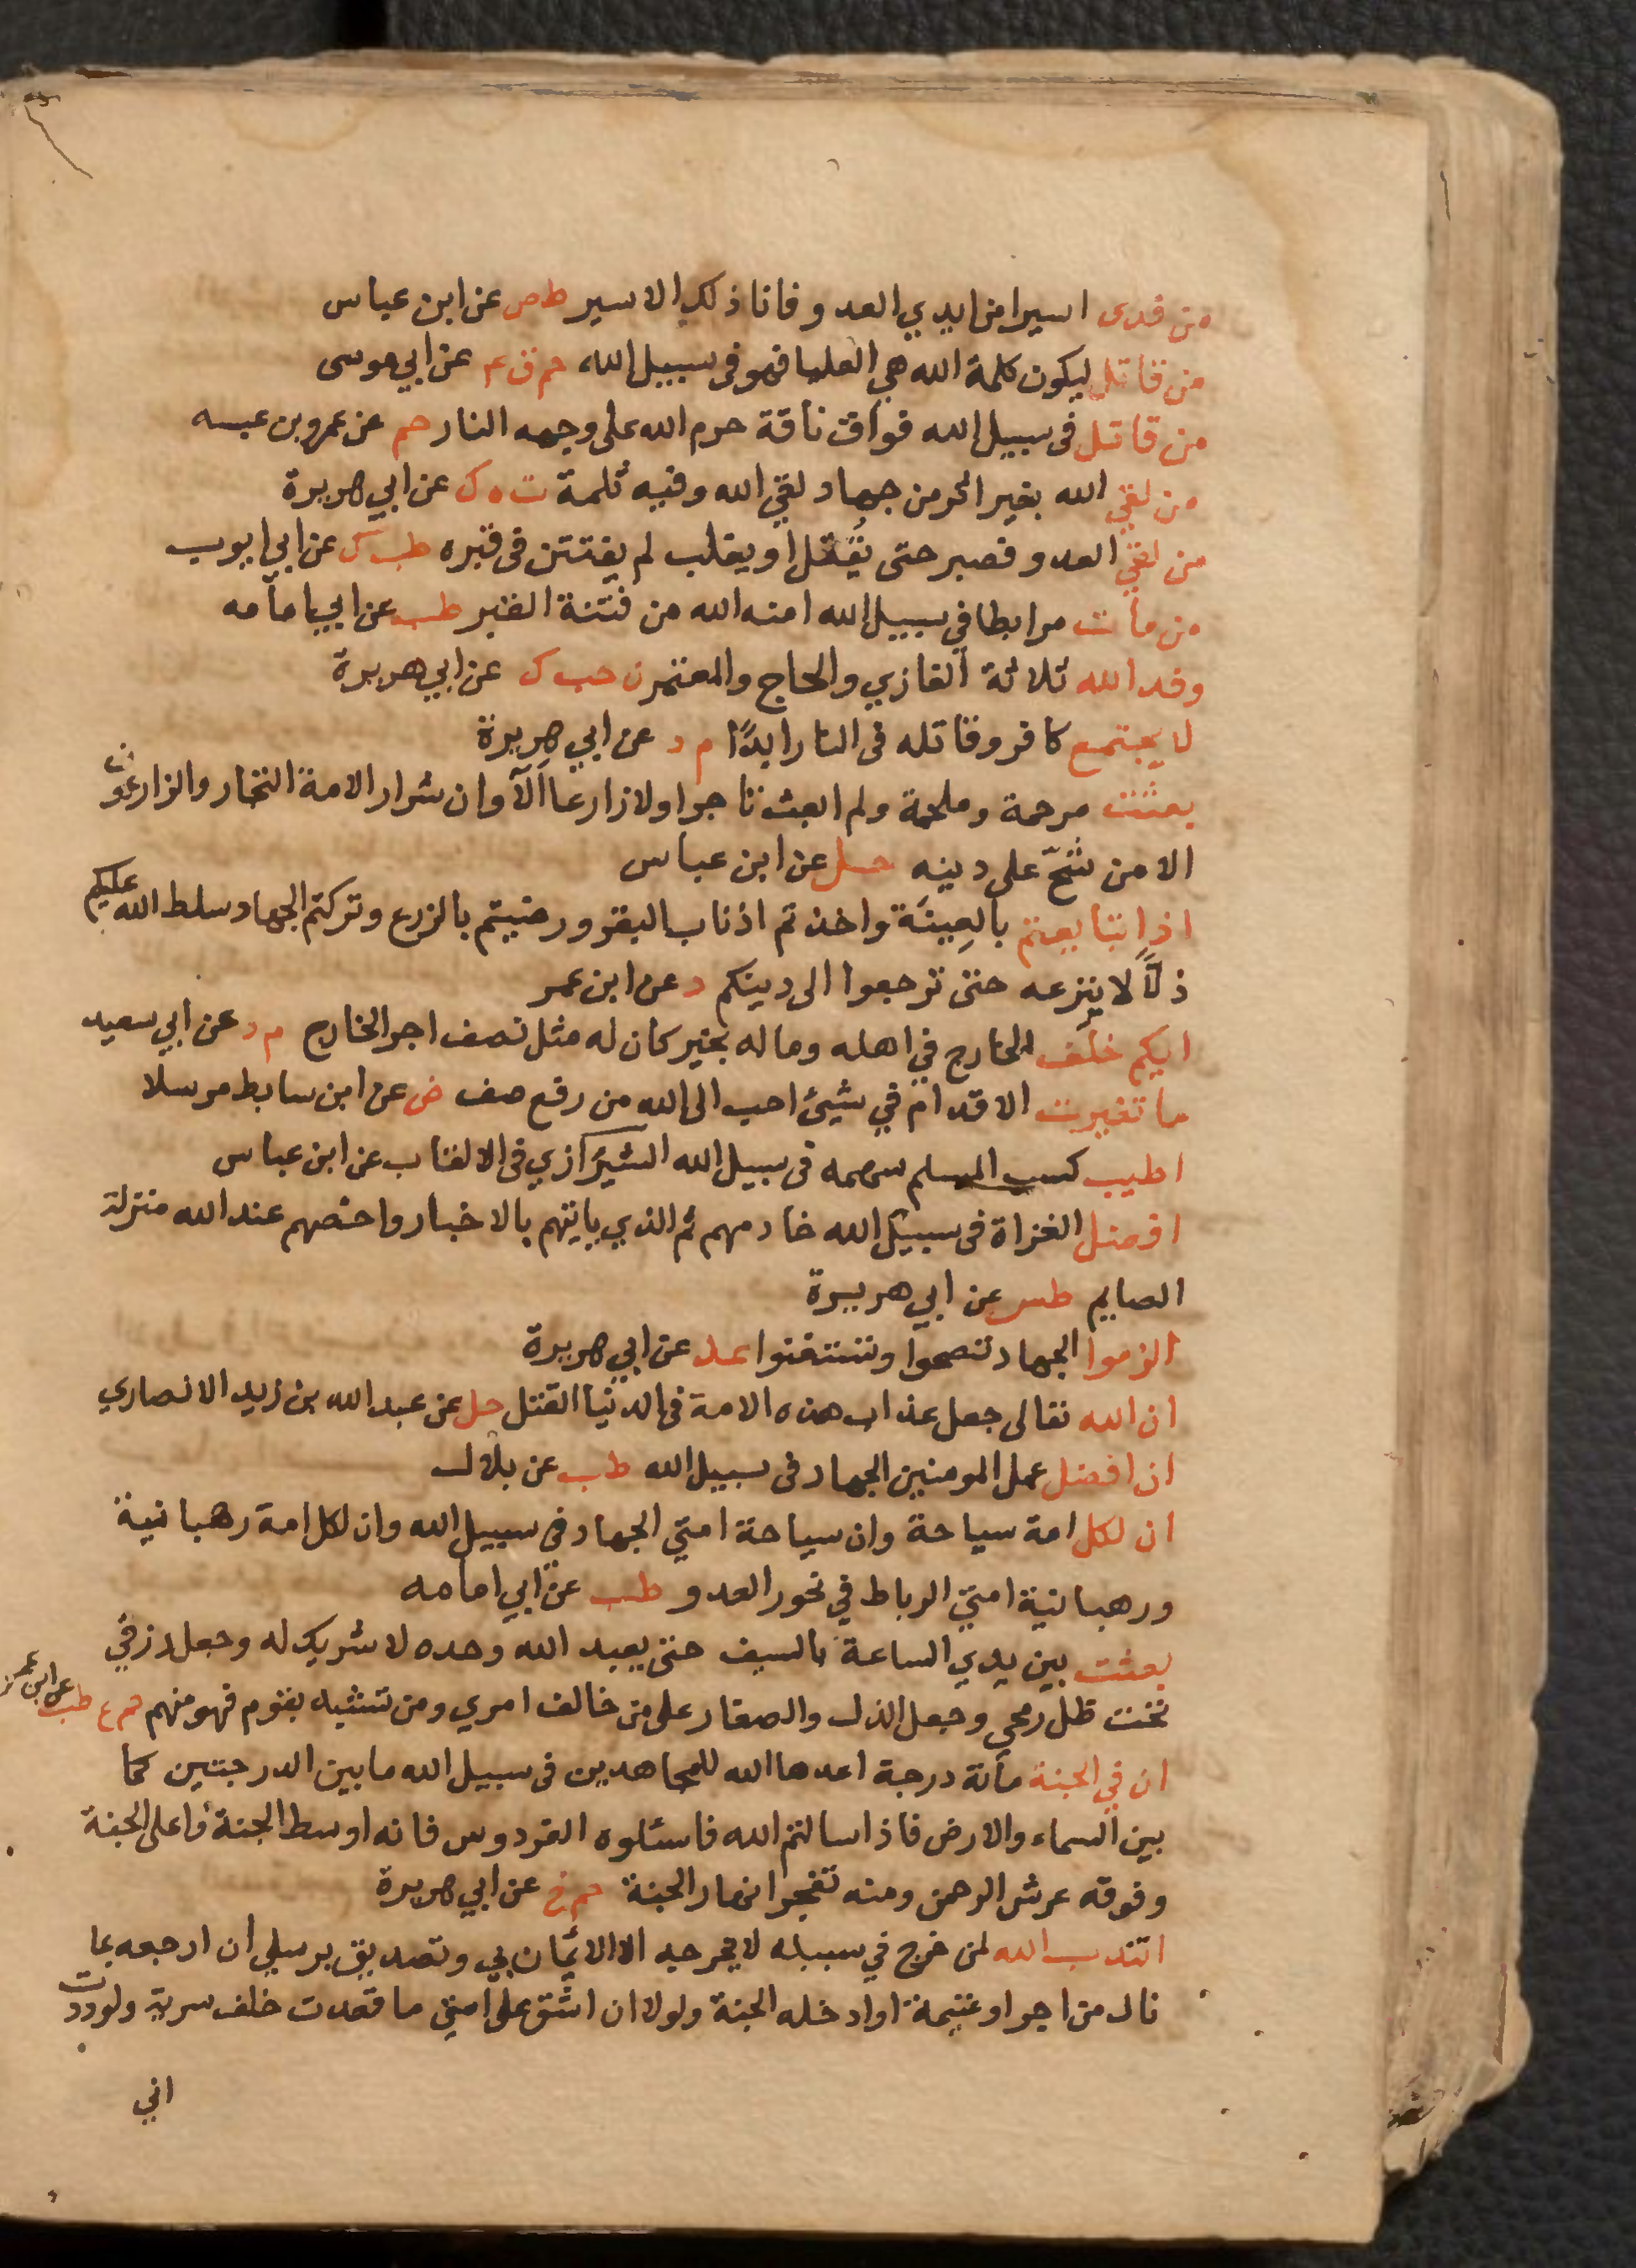 من فدى اسيرا من ايدي العدو فانا ذلك الاسير طص عن ابن عباس
من قاتل ليكون كلمة الله هي العليا فهو في سبيل الله حم ق ٤ عن ابي موسى
من قاتل في سبيل الله فواق ناقة حرم الله على وجهه النار حم عن عمرو بن عبسه
من لقي الله بغير اثر من جهاد لقي الله وفيه ثلمة ت ه ك عن ابي هريرة
من لقي العدو فصبر حتى يُقتل او يغلب لم يفتتن في قبره طب ك عن ابي ايوب
من مات مرابطا في سبيل الله امنه الله من فتنة القبر طب عن ابي امامه
وفد الله ثلاثة الغازي والحاج والمعتمر ن حب ك عن ابي هريرة
لا يجتمع كافر وقاتله في النار ابدًا م د عن ابي هريرة
بعثت مرحمة وملحمة ولم ابعث تاجرا ولا زارعا الآ وان شرار الامة التجار والزارعون
الا من شحّ على دينه حل عن ابن عباس
اذا تبايعتم بالعِينَة واخذتم اذناب البقر ورضيتم بالزرع وتركتم الجهاد سلط الله عليكم
ذلّاً لا ينزعه حتى ترجعوا الى دينكم د عن ابن عمر
ايكم خلَف الخارج في اهله وماله بخير كان له مثل نصف اجر الخارج م د عن ابي سعيد
ما تغيرت الاقدام في شيئ احب الى الله من رقع صف ض عن ابن سابط مرسلا
اطيب كسب المسلم سهمه في سبيل الله الشيرازي في الالقاب عن ابن عباس
افضل الغزاة في سبيل الله خادمهم ثم الذي ياتيهم بالاخبار واخصهم عند الله منزلة
الصايم طس عن ابي هريرة
الزموا الجهاد تصحوا وتستغنوا عد عن ابي هريرة
ان الله تعالى جعل عذاب هذه الامة في الدنيا القتل حل عن عبد الله بن زيد الانصاري
ان افضل عمل المومنين الجهاد في سبيل الله طب عن بلال
ان لكل امة سياحة وان سياحة امتي الجهاد في سبيل الله وان لكل امة رهبانية
ورهبانية امتي الرباط في نحور العدو طب عن ابي امامه
بعثت بين يدي الساعة بالسيف حتى يعبد الله وحده لا شريك له وجعل رزقي
تحت ظل رمحي وجعل الذل والصغار على من خالف امري ومن تشبه بقوم فهو منهم حم ع طب عن ابن عمر
ان في الجنة مأئة درجة اعدها الله للمجاهدين في سبيل الله ما بين الدرجتين كما
بين السماء والارض فاذا سالتم الله فاسئلوه الفردوس فانه اوسط الجنة واعلى الجنة
وفوقه عرش الرحمن ومنه تفجر انهار الجنة حم خ عن ابي هريرة
انتدب الله لمن خرج في سبيله لا يخرجه الا الايمان بي وتصديق برسلي ان ارجعه بما
نال من اجر او غنيمة او ادخله الجنة ولولا ان اشق على امتي ما قعدت خلف سرية ولوددت
اني